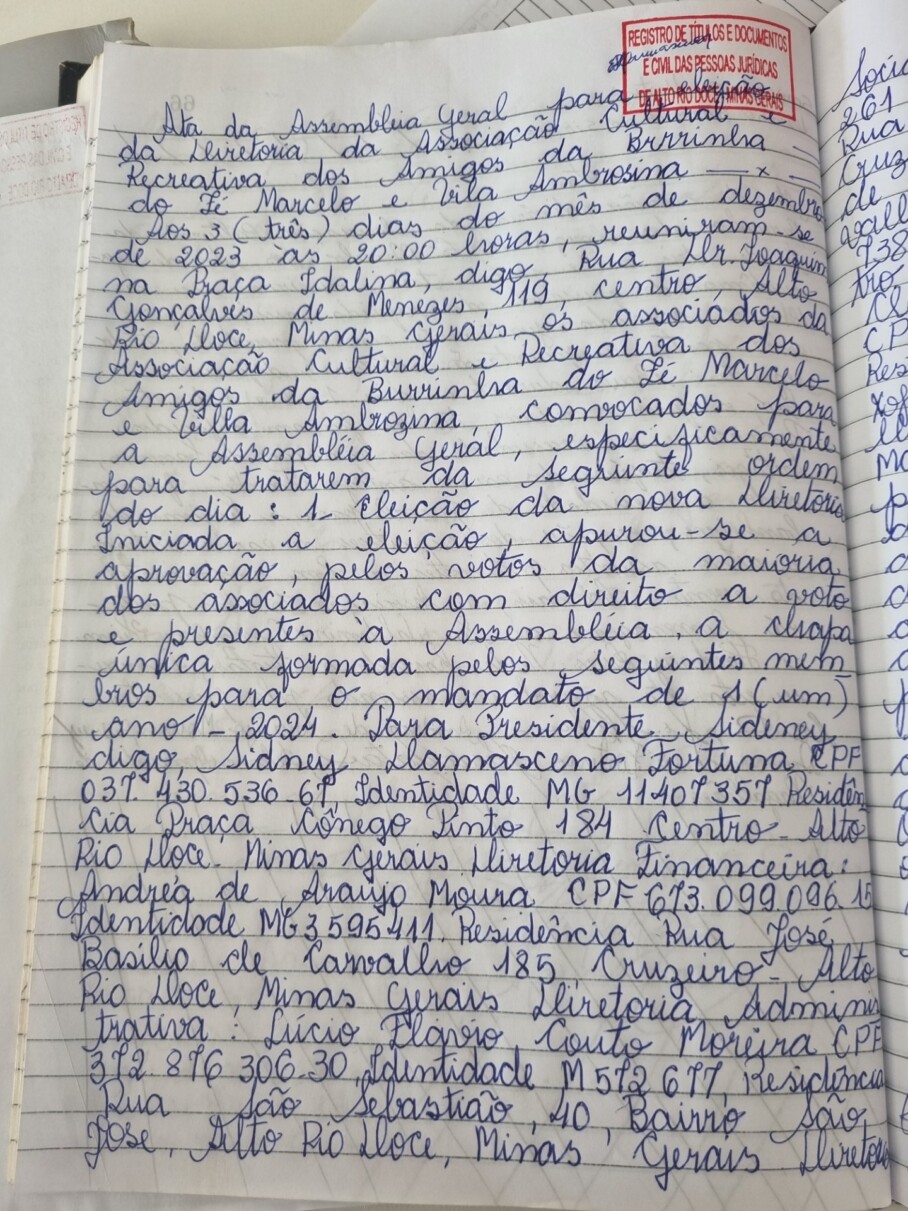 REGISTRO DE TÍTULOS E DOCUMENTOS
E CIVIL DAS PESSOAS JURÍDICAS
DE ALTO RIO DOCE - MINAS GERAIS
Ata da Assembleia Geral para eleição
da Diretoria da Associação Cultural e
Recreativa dos Amigos da Burrinha
do Zé Marcelo e Vila Ambrosina — x —
Aos 3 (três) dias do mês de dezembro
de 2023 às 20:00 horas, reuniram-se
na Praça Idalina, digo, Rua Dr. Joaquim
Gonçalves de Menezes, 119, centro, Alto
Rio Doce, Minas Gerais os associados da
Associação Cultural e Recreativa dos
Amigos da Burrinha do Zé Marcelo
e Villa Ambrozina, convocados para
a Assembléia Geral, especificamente
para tratarem da seguinte ordem
do dia: 1- Eleição da nova Diretoria
Iniciada a eleição, apurou-se a
aprovação, pelos votos da maioria
dos associados com direito a voto
e presentes à Assembléia, a chapa
única formada pelos seguintes mem
bros para o mandato de 1 (um)
ano - 2024. Para Presidente Sideney
digo, Sidney Damasceno Fortuna CPF
037.430.536-67, Identidade MG 11407357 Residên
cia Praça Cônego Pinto 184 Centro - Alto
Rio Doce - Minas Gerais Diretoria Financeira:
Andréa de Araújo Moura CPF 673.099.096.15
Identidade MG3595411. Residência Rua José
Basílio de Carvalho 185, Cruzeiro - Alto
Rio Doce, Minas Gerais Diretoria Adminis
trativa: Lúcio Flávio Couto Moreira, CPF
372.876 306-30, Identidade M 572 677, Residência
Rua São Sebastião, 40, Bairro São
José, Alto Rio Doce, Minas Gerais Diretori
261
Rua
Cruz
de
738
tro
CP
Res